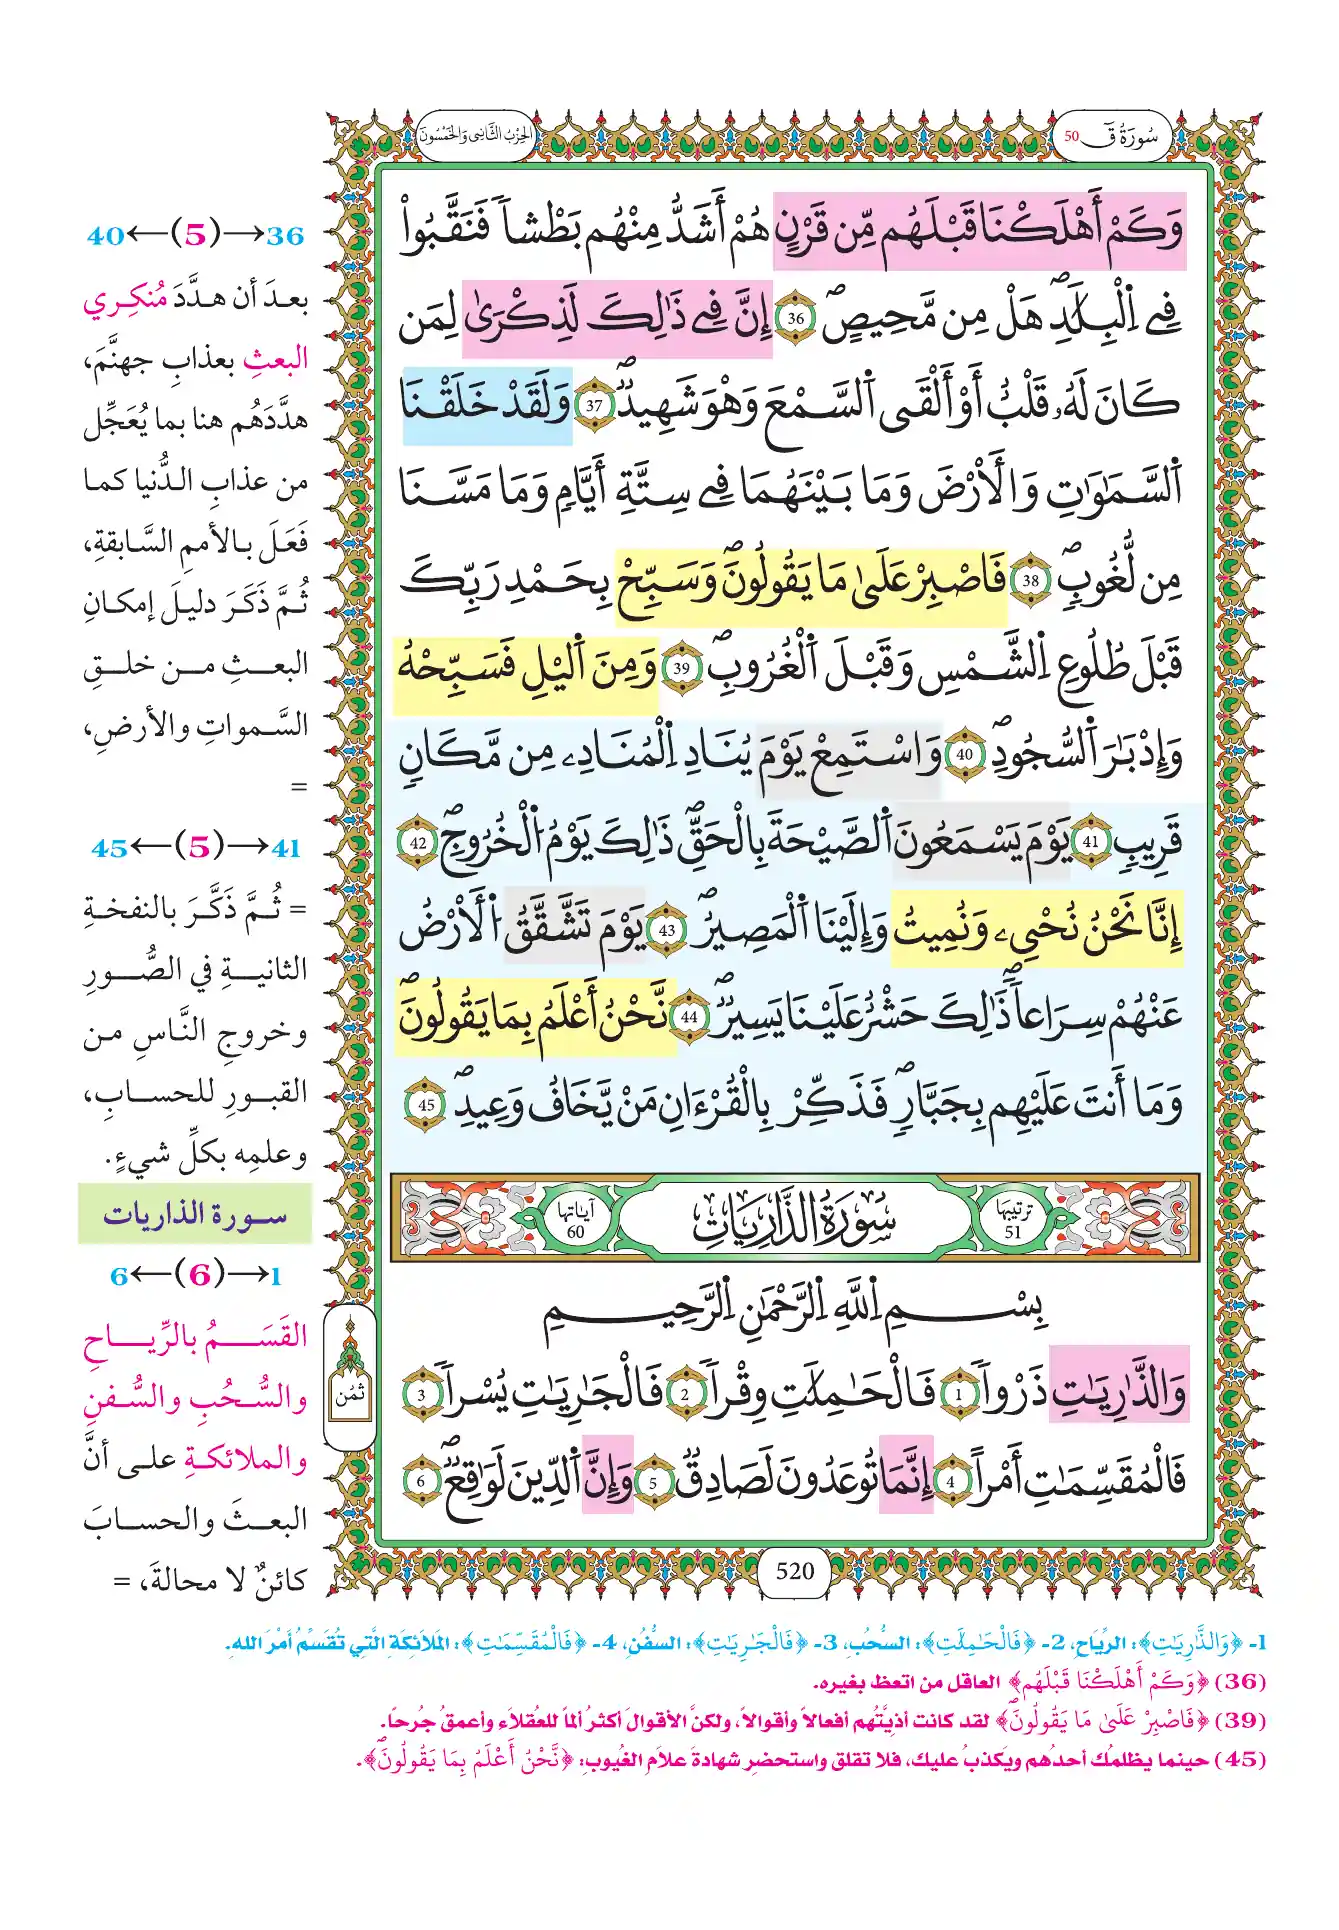 سُورَةُ قٓ 50
الحِزْبُ الثَّانِي وَالخَمْسُونَ
وَكَمْ أَهْلَكْنَا قَبْلَهُم مِّن قَرْنٍ هُمْ أَشَدُّ مِنْهُم بَطْشاٗ فَنَقَّبُواْ
فِے اِ۬لْبِلَٰدِۖ هَلْ مِن مَّحِيصٍۖ 36 إِنَّ فِے ذَٰلِكَ لَذِكْر۪يٰ لِمَن
كَانَ لَهُۥ قَلْبٌ أَوْ أَلْقَى اَ۬لسَّمْعَ وَهْوَ شَهِيدٞۖ 37 وَلَقَدْ خَلَقْنَا
اَ۬لسَّمَٰوَٰتِ وَالْأَرْضَ وَمَا بَيْنَهُمَا فِے سِتَّةِ أَيَّامٖ وَمَا مَسَّنَا
مِن لُّغُوبٖۖ 38 فَاصْبِرْ عَلَىٰ مَا يَقُولُونَۖ وَسَبِّحْ بِحَمْدِ رَبِّكَ
قَبْلَ طُلُوعِ اِ۬لشَّمْسِ وَقَبْلَ اَ۬لْغُرُوبِۖ 39 وَمِنَ اَ۬ليْلِ فَسَبِّحْهُ
وَإِدْبَٰرَ اَ۬لسُّجُودِۖ 40 وَاسْتَمِعْ يَوْمَ يُنَادِ اِ۬لْمُنَادِۦ مِن مَّكَانٖ
قَرِيبٖ 41 يَوْمَ يَسْمَعُونَ اَ۬لصَّيْحَةَ بِالْحَقِّۖ ذَٰلِكَ يَوْمُ اُ۬لْخُرُوجِۖ 42
إِنَّا نَحْنُ نُحْيِۦ وَنُمِيتُ وَإِلَيْنَا اَ۬لْمَصِيرُۖ 43 يَوْمَ تَشَّقَّقُ اُ۬لْأَرْضُ
عَنْهُمْ سِرَاعاٗۖ ذَٰلِكَ حَشْرٌ عَلَيْنَا يَسِيرٞۖ 44 نَّحْنُ أَعْلَمُ بِمَا يَقُولُونَۖ
وَمَا أَنتَ عَلَيْهِم بِجَبَّارٖۖ فَذَكِّرْ بِالْقُرْءَانِ مَنْ يَّخَافُ وَعِيدِۖ 45
ترتيبها 51
سُورَةُ الذَّارِيَاتِ
آياتها 60
بِسْمِ اِ۬للَّهِ اِ۬لرَّحْمَٰنِ اِ۬لرَّحِيمِ
وَالذَّٰرِيَٰتِ ذَرْواٗ 1 فَالْحَٰمِلَٰتِ وِقْراٗ 2 فَالْجَٰرِيَٰتِ يُسْراٗ 3
فَالْمُقَسِّمَٰتِ أَمْراً 4 إِنَّمَا تُوعَدُونَ لَصَادِقٞ 5 وَإِنَّ اَ۬لدِّينَ لَوَٰقِعٞۖ 6
ثمُن
520
36→(5)←40
بعدَ أن هدَّدَ مُنكِري
البعثِ بعذابِ جهنَّمَ،
هدَّدَهُم هنا بما يُعَجِّل
من عذابِ الدُّنيا كما
فَعَلَ بالأممِ السَّابقةِ،
ثُمَّ ذَكَرَ دليلَ إمكانِ
البعثِ من خلقِ
السَّمواتِ والأرضِ،
=
41→(5)←45
= ثُمَّ ذَكَّرَ بالنفخةِ
الثانيةِ في الصُّورِ
وخروجِ النَّاسِ من
القبورِ للحسابِ،
وعلمِه بكلِّ شيءٍ.
سورة الذاريات
1→(6)←6
القَسَمُ بالرِّياحِ
والسُّحُبِ والسُّفنِ
والملائكةِ على أنَّ
البعثَ والحسابَ
كائنٌ لا محالةَ، =
1- ﴿وَالذَّٰرِيَٰتِ﴾: الرِّيَاحِ، 2- ﴿فَالْحَٰمِلَٰتِ﴾: السُّحُبِ، 3- ﴿فَالْجَٰرِيَٰتِ﴾: السُّفُنِ، 4- ﴿فَالْمُقَسِّمَٰتِ﴾: المَلَائِكَةِ الَّتِي تُقَسِّمُ أَمْرَ اللهِ.
(36) ﴿وَكَمْ أَهْلَكْنَا قَبْلَهُم﴾ العاقل من اتعظ بغيره.
(39) ﴿فَاصْبِرْ عَلَىٰ مَا يَقُولُونَۖ﴾ لقد كانت أذيَّتُهم أفعالاً وأقوالاً، ولكنَّ الأقوالَ أكثرُ ألماً للعُقلاءِ وأعمقُ جُرحاً.
(45) حينما يظلمُك أحدُهم ويكذبُ عليك، فلا تقلق واستحضر شهادةَ علاَّمِ الغُيوبِ: ﴿نَّحْنُ أَعْلَمُ بِمَا يَقُولُونَۖ﴾.